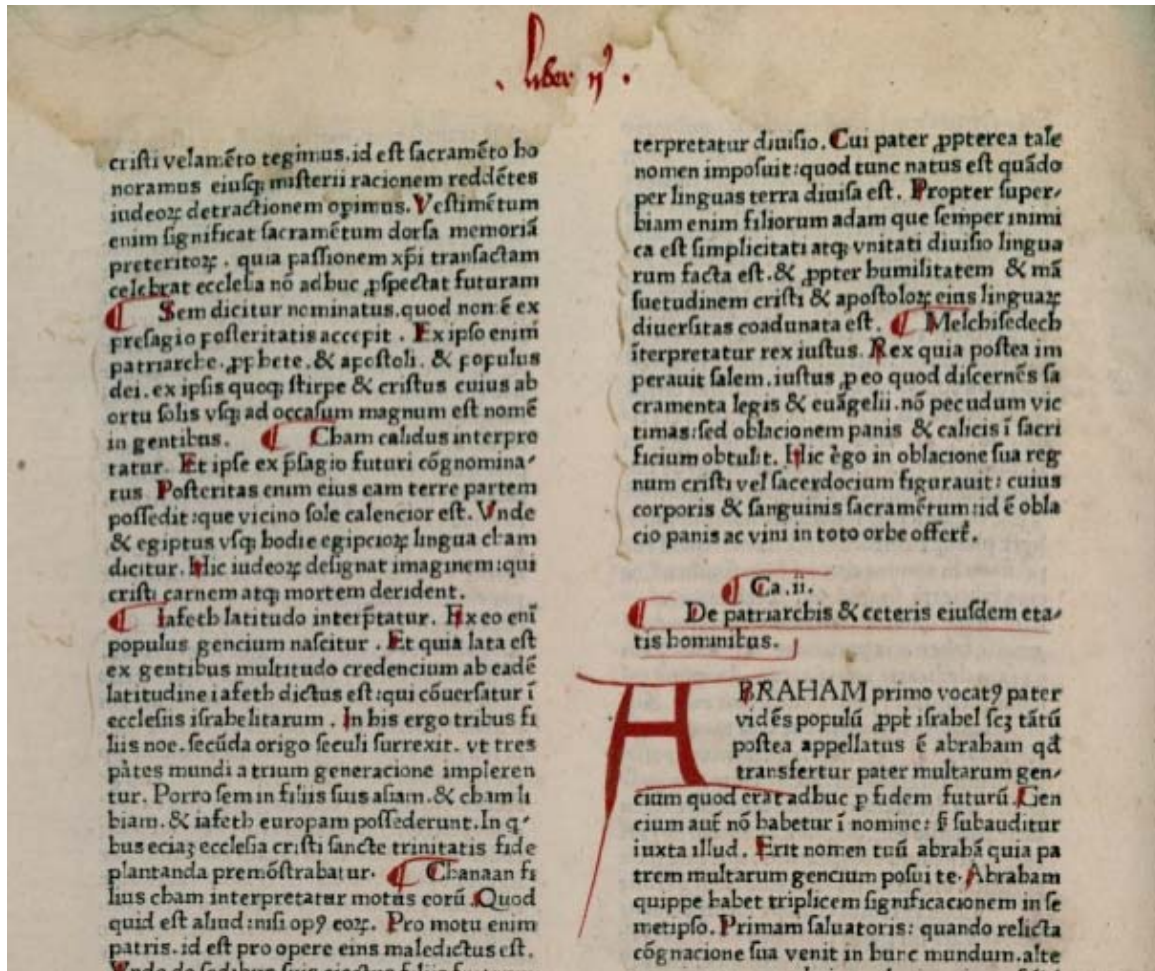 liber ijꝰ.
cristi velamēto tegimus.id est sacramēto ho
noramus eiusqꝫ misterii racionem reddētes
iudeoꝝ detractionem opimus. Vestimētum
enim significat sacramētum dorsa memoriā
preteritoꝝ. quia passionem xp̄i transactam
celebrat ecclesia nō adhuc ꝓspectat futuram
¶ Sem dicitur nominatus.quod non ē ex
presagio posteritatis accepit. Ex ipso enim
patriarche.ꝓphete.& apostoli. & populus
dei.ex ipsis quoqꝫ stirpe & cristus cuius ab
ortu solis vsqꝫ ad occasum magnum est nomē
in gentibus. ¶ Cham calidus interpre
tatur. Et ipse ex p̄sagio futuri cōgnomina⸗
tus Posteritas enim eius eam terre partem
possedit:que vicino sole calencior est. Vnde
& egiptus vsqꝫ hodie egipcioꝝ lingua cham
dicitur. Hic iudeoꝝ designat imaginem:qui
cristi carnem atqꝫ mortem derident.
¶ Iafeth latitudo interp̄tatur. Ex eo eni̅
populus gencium nascitur. Et quia lata est
ex gentibus multitudo credencium ab eadē
latitudine iafeth dictus est:qui cōuersatur ī
ecclesiis israhelitarum. In his ergo tribus fi
liis noe.secūda origo seculi surrexit. vt tres
pātes mundi a trium generacione impleren
tur. Porro sem in filiis suis asiam.& cham li
biam.& iafeth europam possederunt.In q'
bus eciaꝫ ecclesia cristi sancte trinitatis fide
plantanda premōstrabatur. ¶ Chanaan fi
lius cham interpretatur motus eorū. Quod
quid est aliud:nisi opꝰ eoꝝ. Pro motu enim
patris.id est pro opere eius maledictus est.
Vnde de sedibus suis eiectus
terpretatur diuisio. Cui pater ꝓpterea tale
nomen imposuit:quod tunc natus est quādo
per linguas terra diuisa est. Propter super⸗
biam enim filiorum adam que semper inimi
ca est simplicitati atqꝫ vnitati diuisio lingua
rum facta est.& ꝓpter humilitatem & mā
suetudinem cristi & apostoloꝝ eius linguaꝝ
diuersitas coadunata est. ¶ Melchisedech
īterpretatur rex iustus. Rex quia postea im
perauit salem.iustus ꝓ eo quod discernēs sa
cramenta legis & euāgelii.nō pecudum vic
timas:sed oblacionem panis & calicis ī sacri
ficium obtulit. Hic ēgo in oblacione sua reg
num cristi vel sacerdocium figurauit: cuius
corporis & sanguinis sacramētum:id ē obla
cio panis ac vini in toto orbe offert̄.
¶ Ca.ii.
¶ De patriarchis & ceteris eiusdem eta⸗
tis hominibus.
ABRAHAM primo vocatꝰ pater
vidēs populū ꝓpt̄ israhel scꝫ tātū
postea appellatus ē abraham qd̄
transfertur pater multarum gen⸗
cium quod erat adhuc p fidem futurū. Gen
cium aut̄ nō habetur ī nomine: s̄ subauditur
iuxta illud. Erit nomen tuū abrahā quia pa
trem multarum gencium posui te. Abraham
quippe habet triplicem significacionem in se
metipso. Primam saluatoris: quando relicta
cōgnacione sua venit in hunc mundum.alte